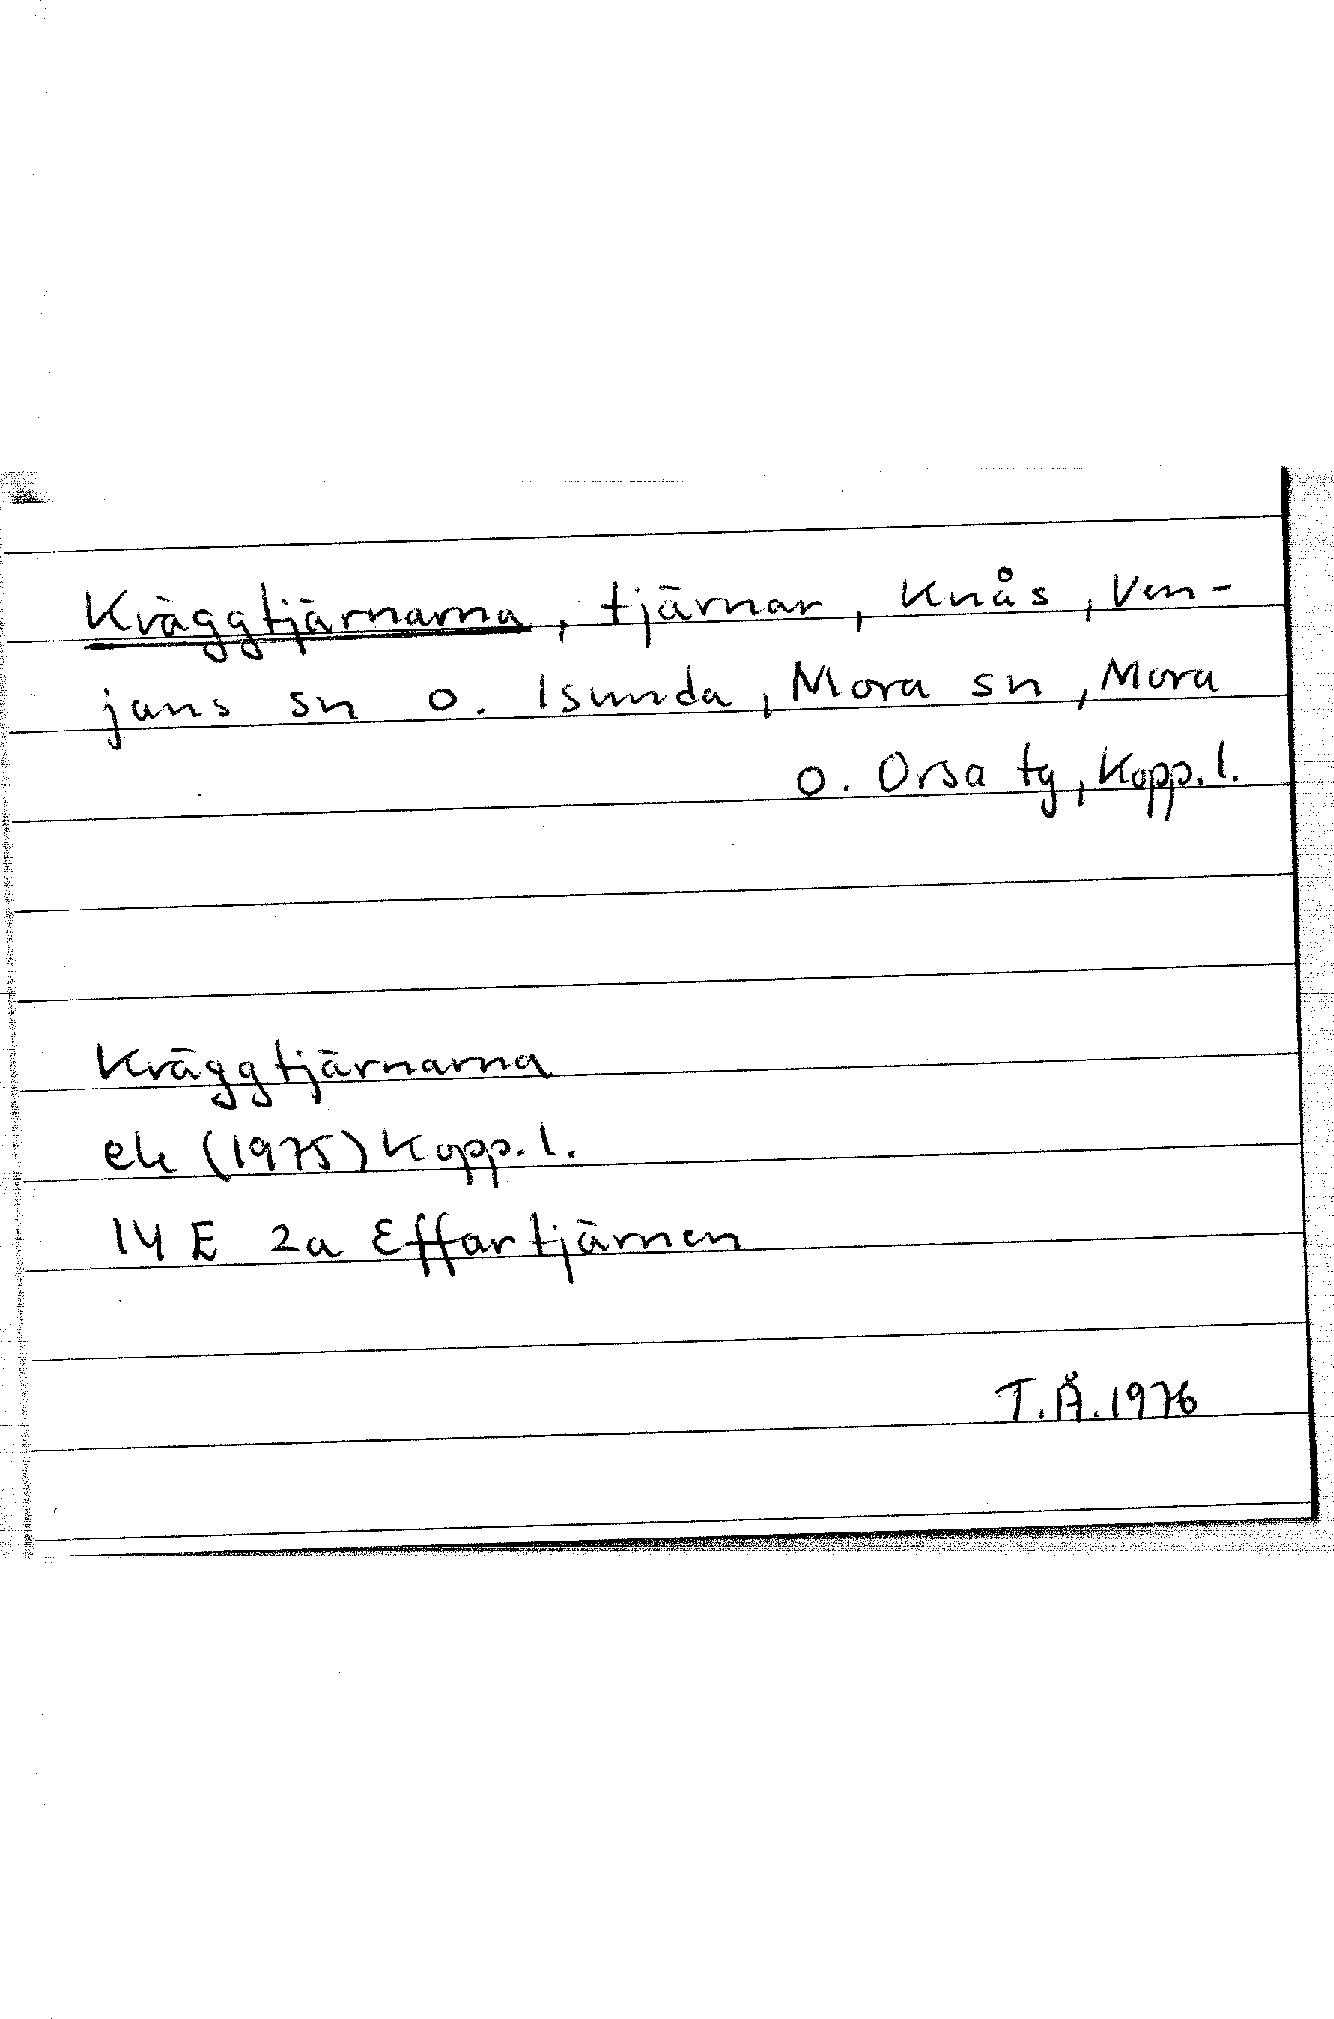 Kräggtjärnarna, tjärnar, Knås, Ven-
jans sn o. Isunda, Mora sn, Mora
o. Orsa tg, Kopp. l.
Kräggtjärnarna
ek (1975) Kopp. l.
14 E 2a Effartjärnen
T.Å. 1976